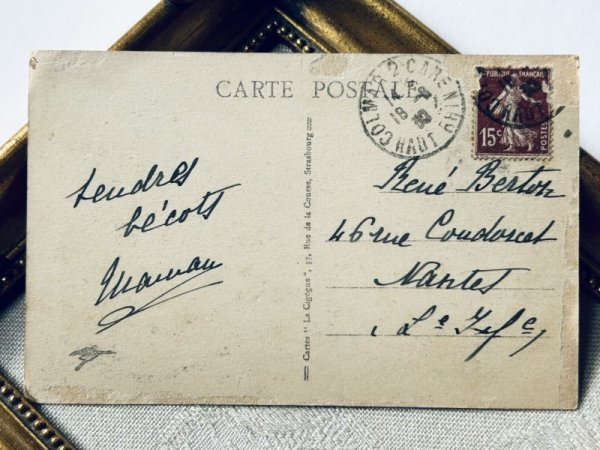 CARTE POSTALE
COLMAR 2 CARE NIHY
18
HAUT
RÉPUBLIQUE FRANÇAISE
15c
POSTES
tendres
bécots
Maman
Cartes "La Cigogne", 37, Rue de la Course, Strasbourg
René Berton
46 rue Condorcet
Nantes
(Lre Infre)